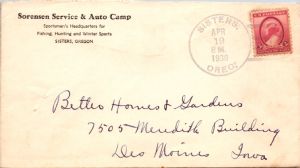 Sorensen Service & Auto Camp
Sportsmen's Headquarters for
Fishing, Hunting and Winter Sports
SISTERS, OREGON
SISTERS,
APR
19
P.M.
1936
OREG.
Better Homes & Gardens
7505 Meredith Building
Des Moines Iowa